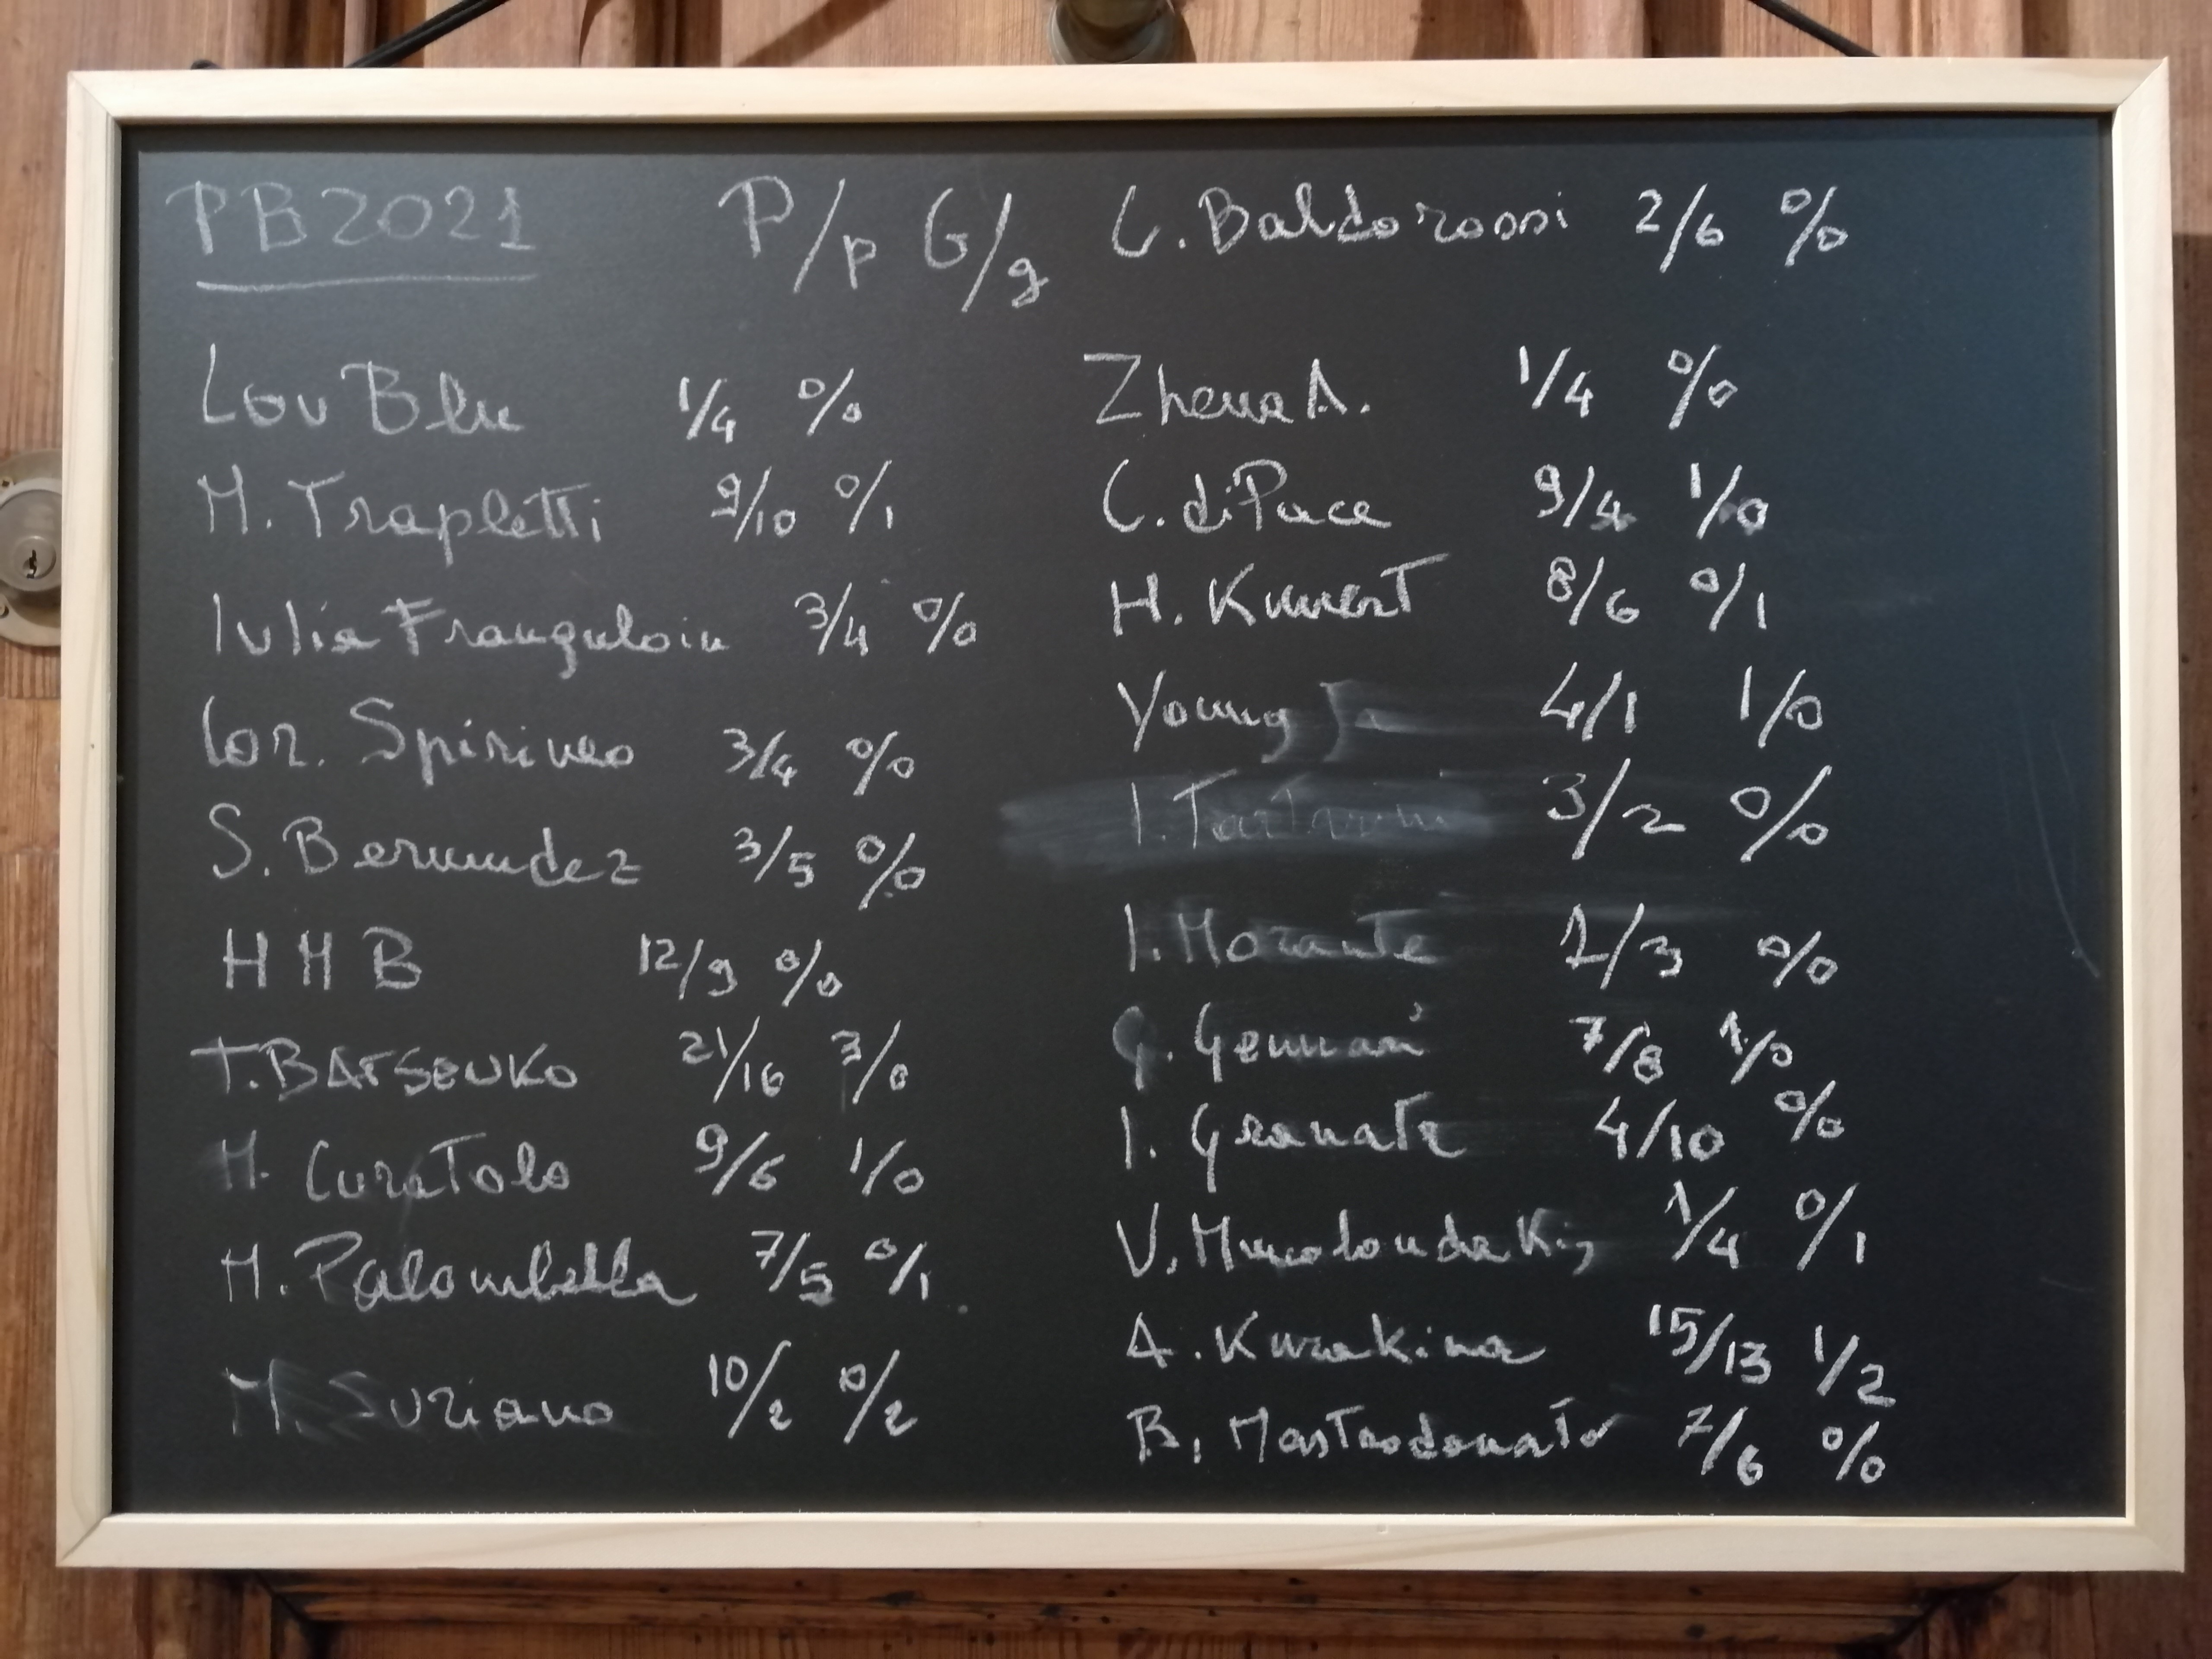 PB2021 P/p G/g
Lou Blu 1/4 0/0
M. Trapletti 9/10 0/1
Iulia Franguloiu 3/4 0/0
Cor. Spirineo 3/4 0/0
S. Bermudez 3/5 0/0
HMB 12/9 0/0
T. BATSENKO 21/16 3/0
M. Curatolo 9/6 1/0
M. Palombella 7/5 0/1
M. Suriano 10/2 0/2
C. Baldorossi 2/6 0/0
Zhenia A. 1/4 0/0
C. di Pace 9/4 1/0
H. Kunert 8/6 0/1
Young 4/1 1/0
I. 3/2 0/0
I. Morante 1/3 0/0
G. Gennari 7/8 1/0
I. Granata 4/10 0/0
V. 1/4 0/1
A. Kurakina 15/13 1/2
B. Mastrodonato 7/6 0/0